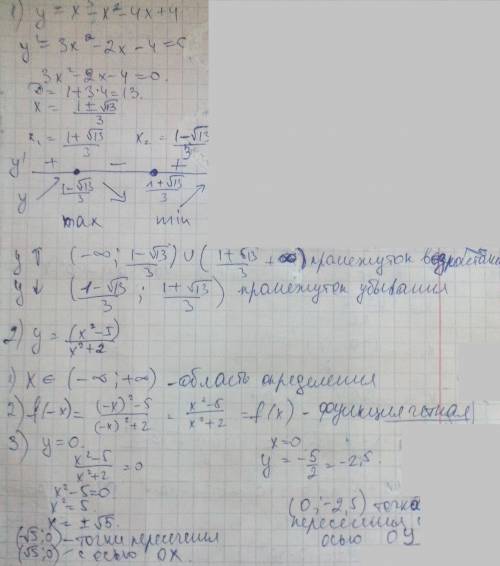 1) y = x³ - x² - 4x + 4
y' = 3x² - 2x - 4 = 0
3x² - 2x - 4 = 0.
D = 1 + 3·4 = 13.
x = (1 ± √13)/3
x₁ = (1 + √13)/3 x₂ = (1 - √13)/3
y' + - +
(1 - √13)/3 (1 + √13)/3
y
max min
y ↑ (-∞; (1 - √13)/3) ∪ ((1 + √13)/3 +∞) промежуток возрастани
y ↓ ((1 - √13)/3; (1 + √13)/3) промежуток убывания
2) y = (x² - 5)/(x² + 2)
1) x ∈ (-∞; +∞) - область определения
2) f(-x) = ((-x)² - 5)/((-x)² + 2) = (x² - 5)/(x² + 2) = f(x) - функция четная
3) y = 0.
(x² - 5)/(x² + 2) = 0
x² - 5 = 0
x² = 5
x = ± √5.
(-√5; 0) - точки пересечения
(√5; 0) - с осью OX.
x = 0
y = -5/2 = -2,5.
(0; -2,5) точка
пересечения с
осью OY